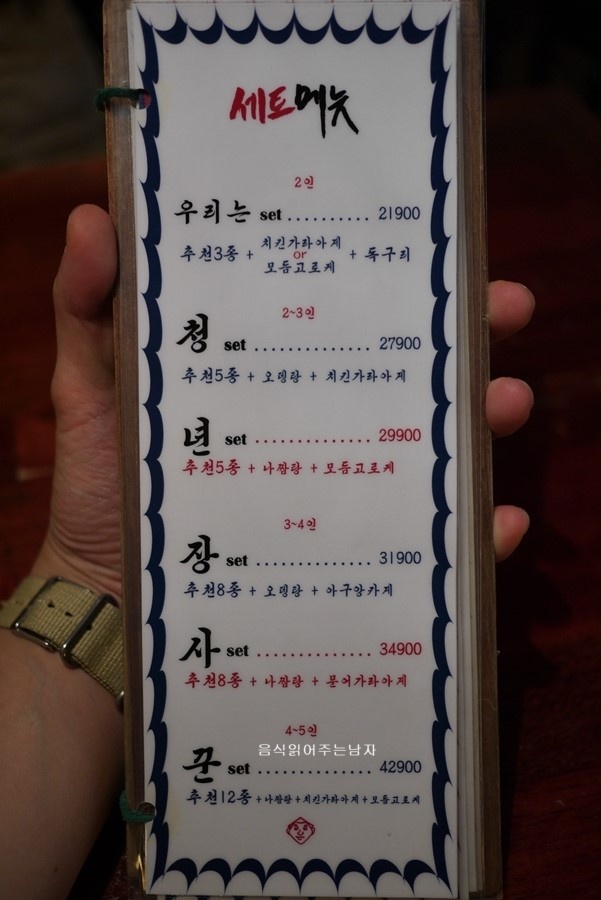 세트메뉴
2인
우리는 set .......... 21900
추천3종 + 치킨가라아게 or 모듬고로케 + 독구리
2~3인
청 set .............. 27900
추천5종 + 오뎅탕 + 치킨가라아게
년 set .............. 29900
추천5종 + 나짬탕 + 모듬고로케
3~4인
장 set .............. 31900
추천8종 + 오뎅탕 + 아구앙카제
사 set .............. 34900
추천8종 + 나짬탕 + 문어가라아게
4~5인
음식읽어주는남자
꾼 set .............. 42900
추천12종 + 나짬탕 + 치킨가라아게 + 모듬고로케